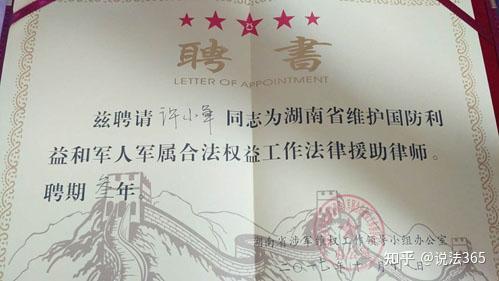 聘書
LETTER OF APPOINTMENT
兹聘请 许小军 同志为湖南省维护国防利
益和军人军属合法权益工作法律援助律师。
聘期 叁年。
湖南省涉军维权工作领导小组办公室
二〇一七年十
知乎 @说法365